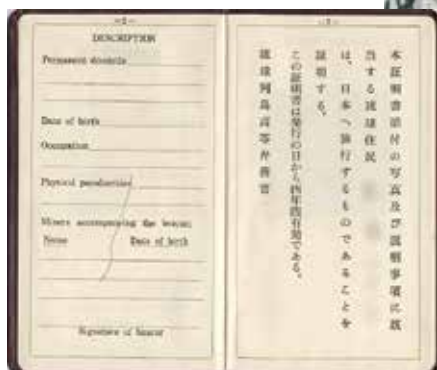 —2—
DESCRIPTION
Permanent domicile
Date of birth
Occupation
Physical peculiarities
Minors accompanying the bearer:
Name Date of birth
Signature of bearer
—3—
本証明書添付の写真及び説明事項に該
当する琉球住民
は、日本へ旅行するものであることを
証明する。
この証明書は発行の日から四年間有効である。
琉球列島高等弁務官